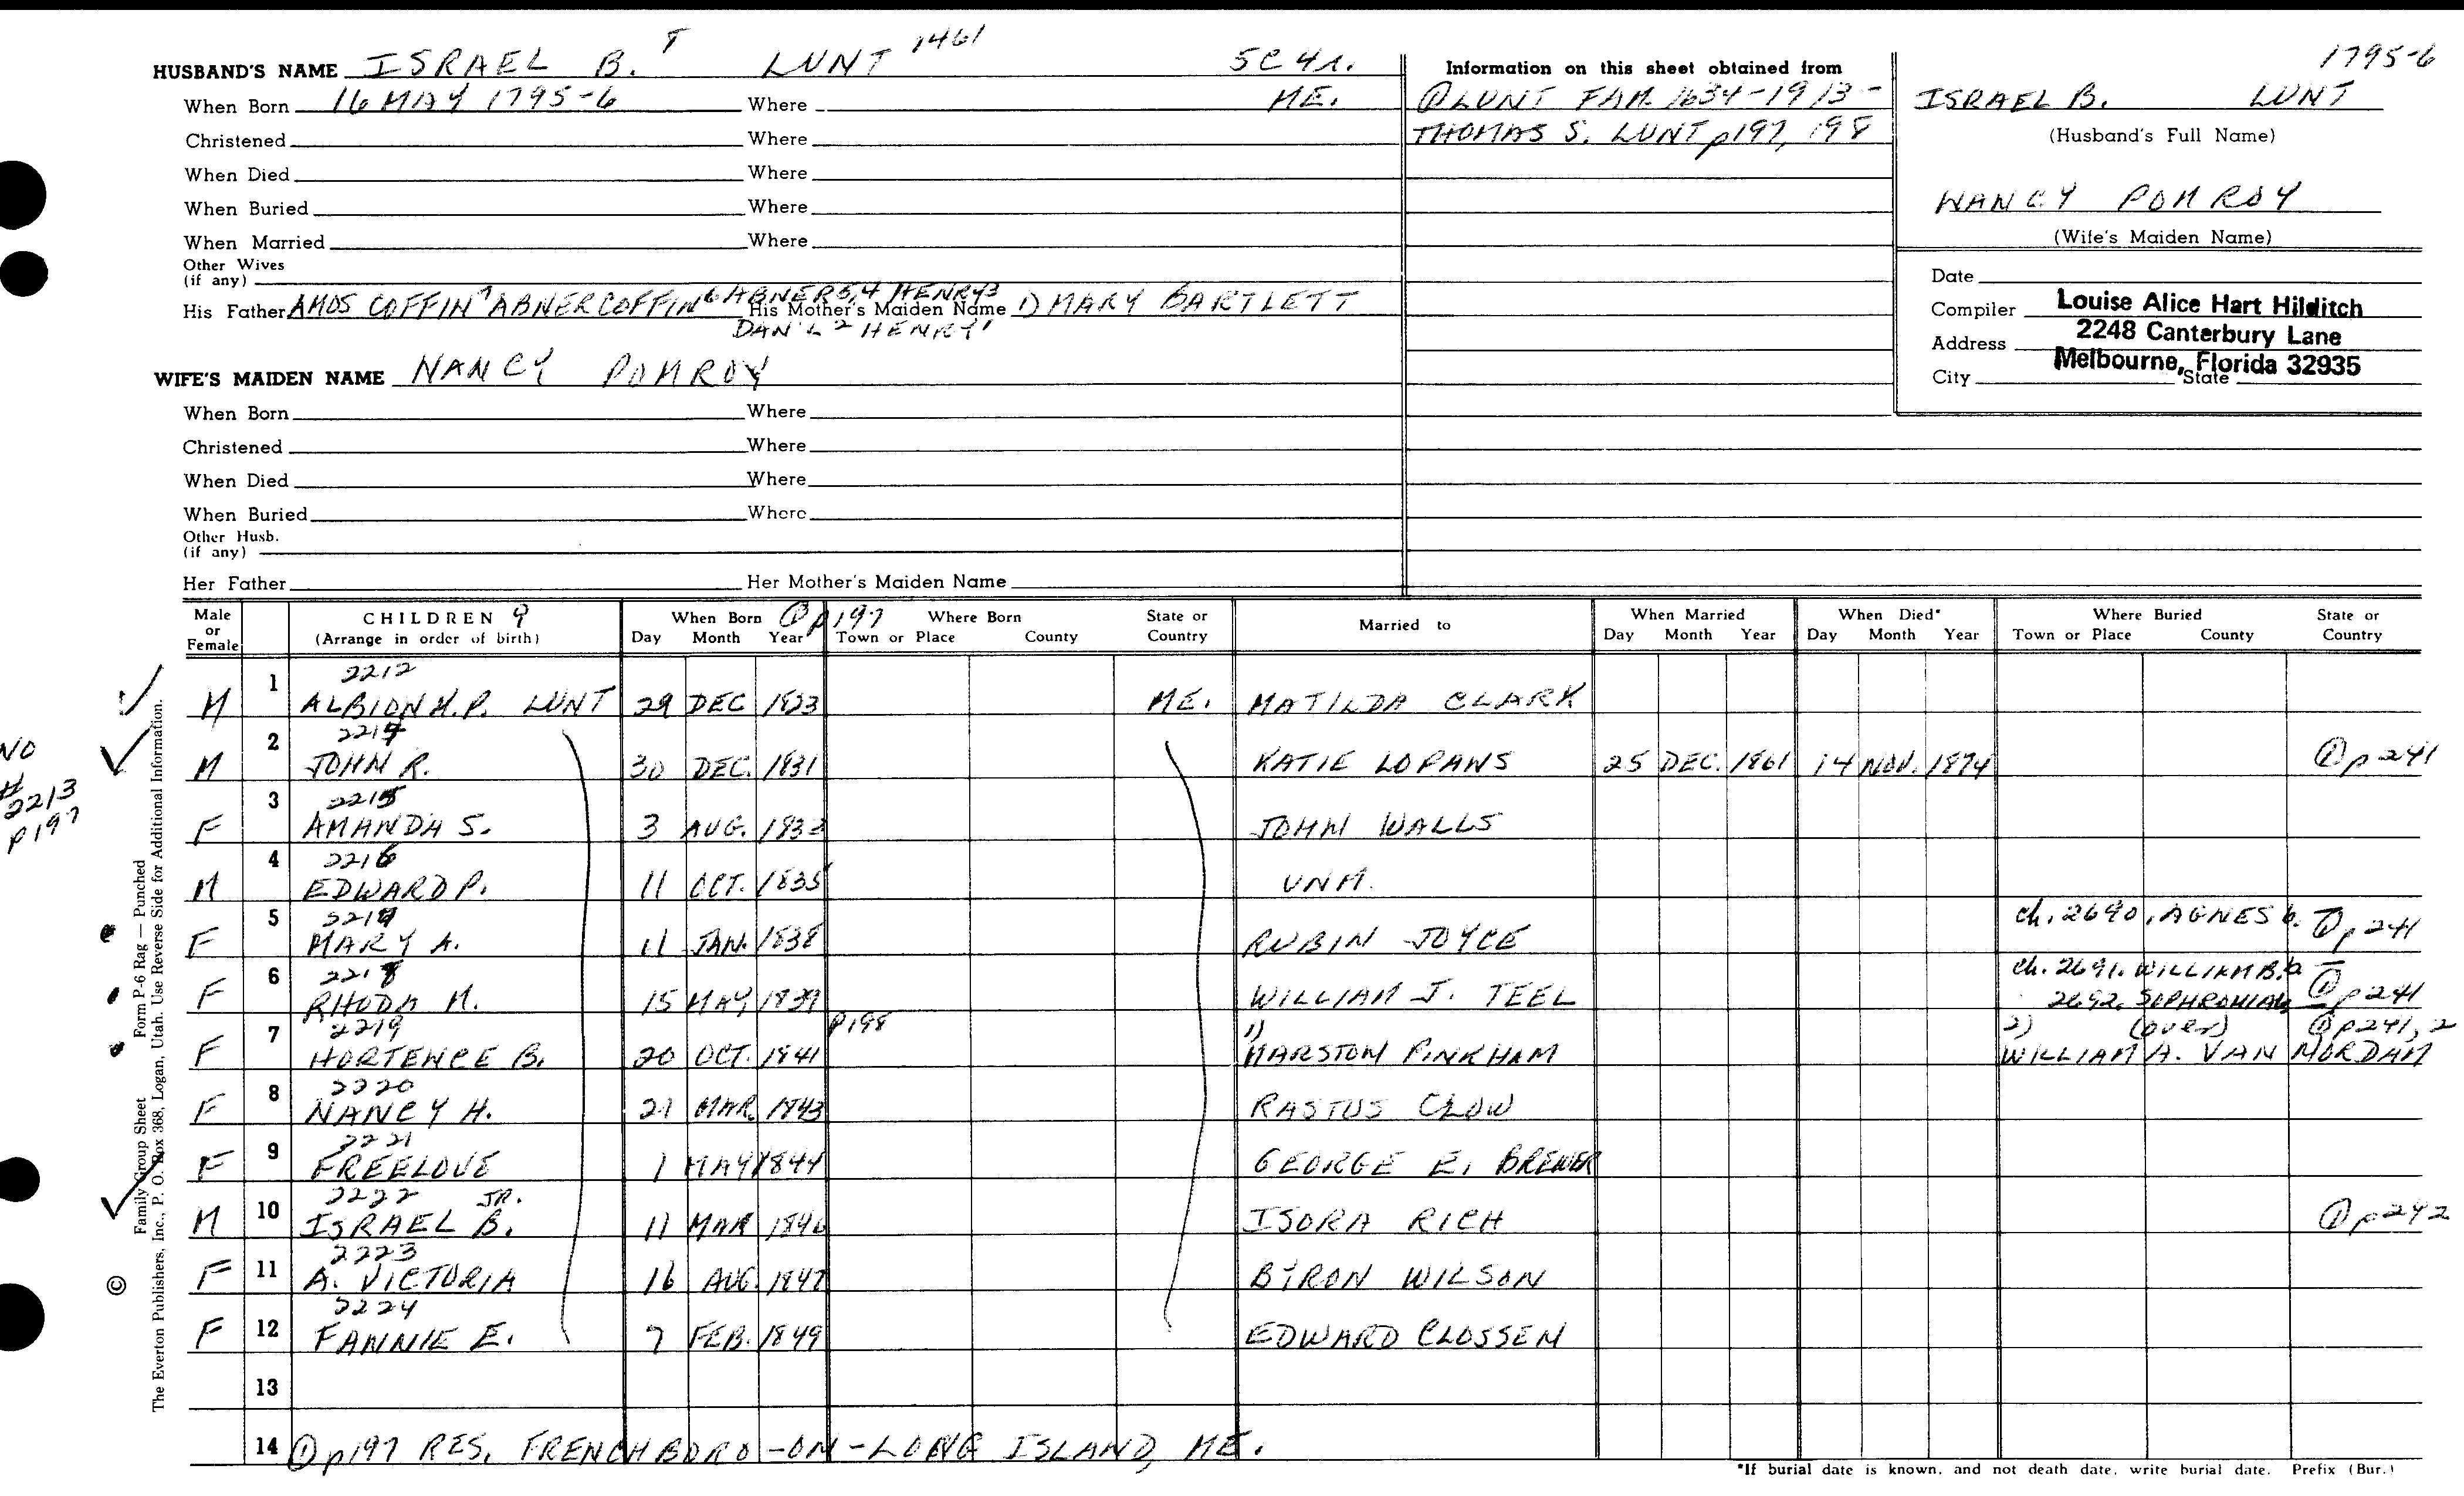 HUSBAND'S NAME ISRAEL B. LUNT 1461 5C 4r.
When Born 16 MAY 1795-6 Where ME.
Christened Where
When Died Where
When Buried Where
When Married Where
Other Wives
(if any)
His Father AMOS COFFIN7 ABNER COFFIN6 ABNER5,4 HENRY3 His Mother's Maiden Name 1) MARY BARTLETT
DAN'L2 HENRY1
WIFE'S MAIDEN NAME NANCY POMROY
When Born Where
Christened Where
When Died Where
When Buried Where
Other Husb.
(if any)
Her Father Her Mother's Maiden Name
Information on this sheet obtained from
① LUNT FAM. 1634-1913-
THOMAS S. LUNT p197, 198
1795-6
ISRAEL B. LUNT
(Husband's Full Name)
NANCY POMROY
(Wife's Maiden Name)
Date
Compiler Louise Alice Hart Hilditch
Address 2248 Canterbury Lane
Melbourne, Florida 32935
City State
Male or Female CHILDREN 9 (Arrange in order of birth) When Born Day Month Year ① p197 Where Born Town or Place County State or Country Married to When Married Day Month Year When Died* Day Month Year Where Buried Town or Place County State or Country
2212
M 1 ALBION H.P. LUNT 29 DEC 1823 ME. MATILDA CLARK
2214
M 2 JOHN R. 30 DEC. 1831 KATIE LOPAWS 25 DEC. 1861 14 NOV. 1874 ① p241
2215
F 3 AMANDA S. 3 AUG. 1833 JOHN WALLS
2216
M 4 EDWARD P. 11 OCT. 1835 UNM.
2217 ch. 2690, AGNES 6.
F 5 MARY A. 11 JAN. 1838 RUBIN JOYCE ① p241
2218 ch. 2691. WILLIAM B.
F 6 RHODA M. 15 MAY 1839 WILLIAM J. TEEL 2692. SOPHRONIA ① p241
2219 p198 1) 2) (over) ① p241, 2
F 7 HORTENCE B. 20 OCT. 1841 MARSTON PINKHAM WILLIAM A. VAN NORDAM
2220
F 8 NANCY H. 21 MAR. 1843 RASTUS CLOW
2221
F 9 FREELOVE 1 MAY 1844 GEORGE E. BREWER
2222 JR.
M 10 ISRAEL B. 11 MAR 1846 ISORA RICH ① p242
2223
F 11 A. VICTORIA 16 AUG. 1847 BYRON WILSON
2224
F 12 FANNIE E. 7 FEB. 1849 EDWARD CLOSSEN
13
14 ① p197 RES. FRENCHBORO-ON-LONG ISLAND, ME.
*If burial date is known, and not death date, write burial date. Prefix (Bur.)
NO
#
2213
p197
© Family Group Sheet Form P-6 Rag — Punched
The Everton Publishers, Inc., P. O. Box 368, Logan, Utah. Use Reverse Side for Additional Information.